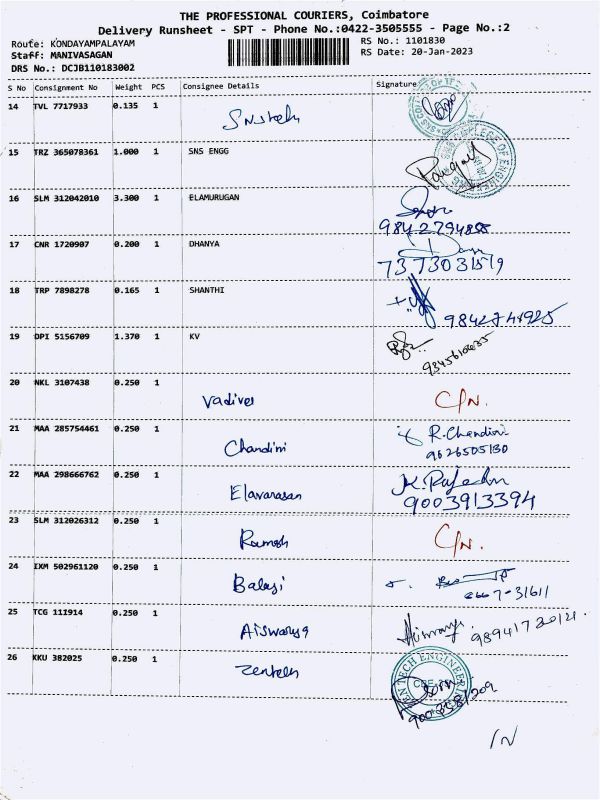 THE PROFESSIONAL COURIERS, Coimbatore
Delivery Runsheet - SPT - Phone No.:0422-3505555 - Page No.:2
Route: KONDAYAMPALAYAM
Staff: MANIVASAGAN
DRS No.: DCJB110183002
RS No.: 1101830
RS Date: 20-Jan-2023
S No Consignment No Weight PCS Consignee Details Signature
14 TVL 7717933 0.135 1
15 TRZ 365078361 1.000 1 SNS ENGG
16 SLM 312042010 3.300 1 ELAMURUGAN
17 CNR 1720907 0.200 1 DHANYA
18 TRP 7898278 0.165 1 SHANTHI
19 DPI 5156709 1.370 1 KV
20 NKL 3107438 0.250 1 Vadivel C/N.
21 MAA 285754461 0.250 1 Chandini R.Chandini
9626505130
22 MAA 298666762 0.250 1 Elavarasan K.Rajesh
9003913394
23 SLM 312026312 0.250 1 Ramesh C/N.
24 IXM 502961120 0.250 1 Balaji
25 TCG 111914 0.250 1 Aiswarya
26 KKU 382025 0.250 1 Zentech